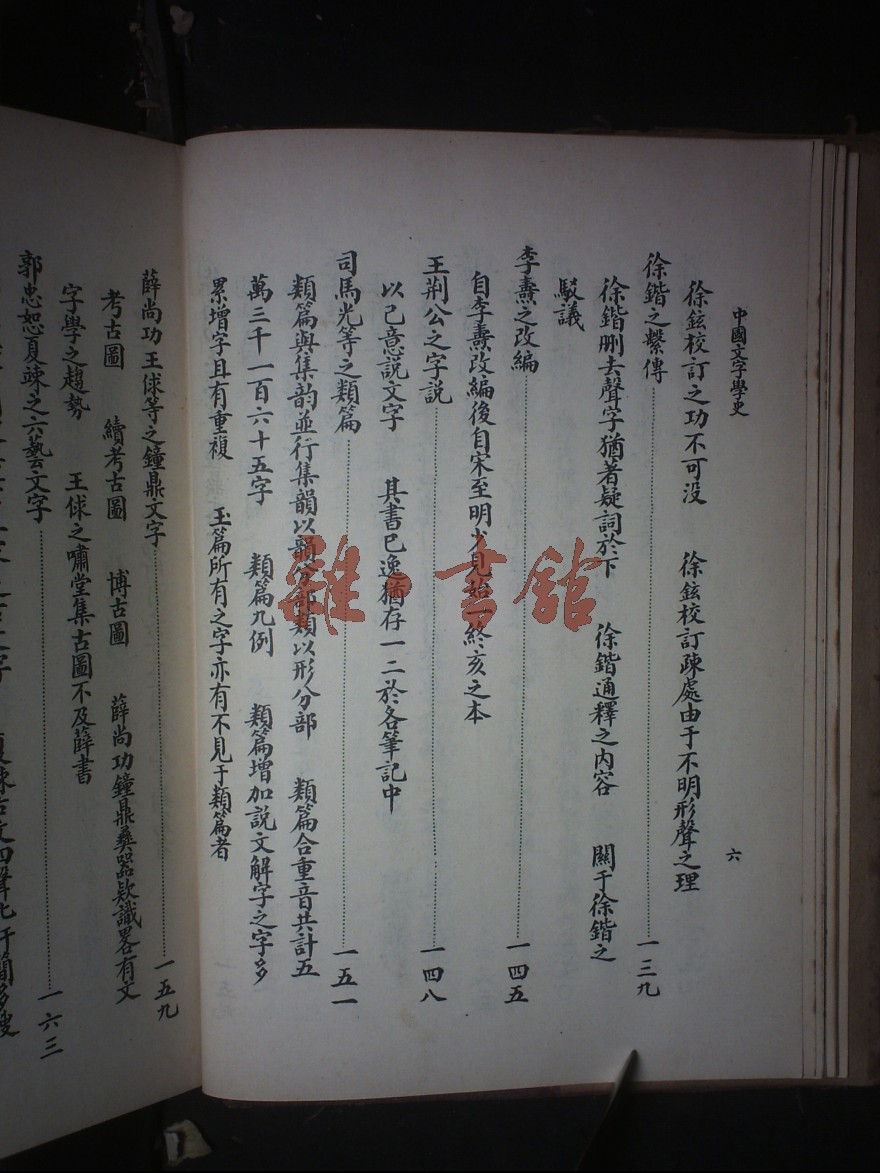 中國文字學史
六
徐鉉校訂之功不可没　徐鉉校訂疎處由于不明形聲之理
徐鍇之繫傳……一三九
徐鍇刪去聲字猶著疑詞於下　徐鍇通釋之内容　關于徐鍇之
駁議
李燾之改編……一四五
自李燾改編後自宋至明少見始一終亥之本
王荆公之字説……一四八
以己意説文字　其書已逸猶存一二於各筆記中
司馬光等之類篇……一五一
類篇與集韵並行集韻以韻分部類以形分部　類篇合重音共計五
萬三千一百六十五字　類篇九例　類篇增加説文解字之字多
累增字且有重複　玉篇所有之字亦有不見于類篇者
薛尚功王俅等之鐘鼎文字……一五九
考古圖　續考古圖　博古圖　薛尚功鐘鼎彝器欵識畧有文
字學之趨勢　王俅之嘯堂集古圖不及薛書
郭忠恕夏竦之六藝文字……一六三
雜·書館